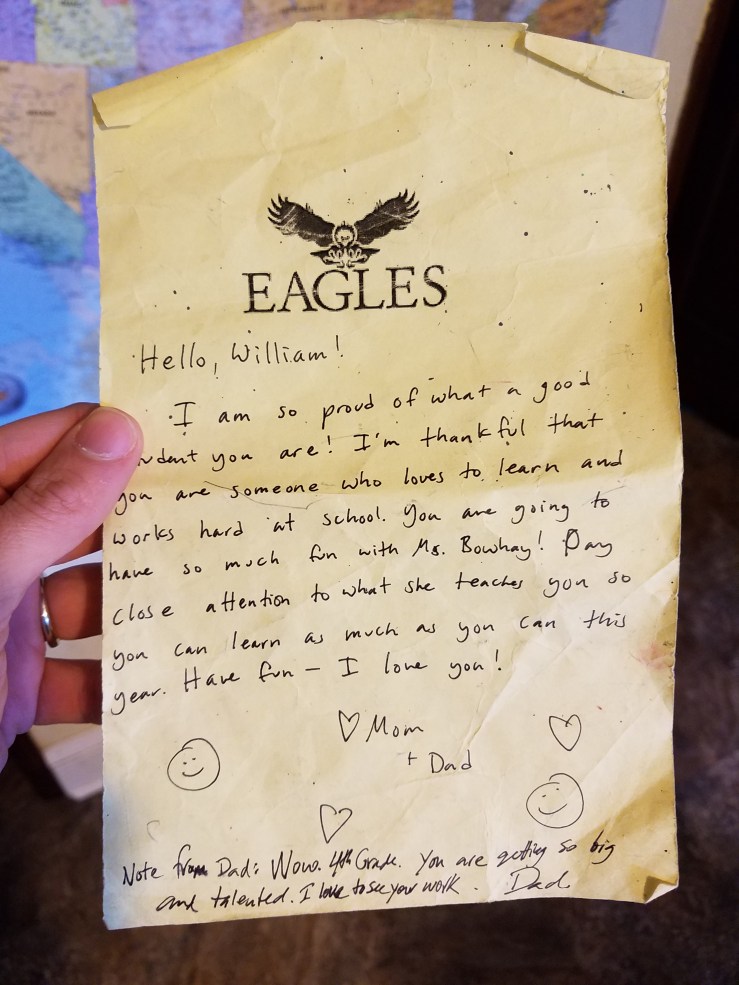 EAGLES
Hello, William!
I am so proud of what a good
student you are! I'm thankful that
you are someone who loves to learn and
works hard at school. You are going to
have so much fun with Ms. Bowhay! Pay
close attention to what she teaches you so
you can learn as much as you can this
year. Have fun – I love you!
♡ Mom
+ Dad
Note from Dad: Wow. 4th Grade. You are getting so big
and talented. I love to see your work. Dad.